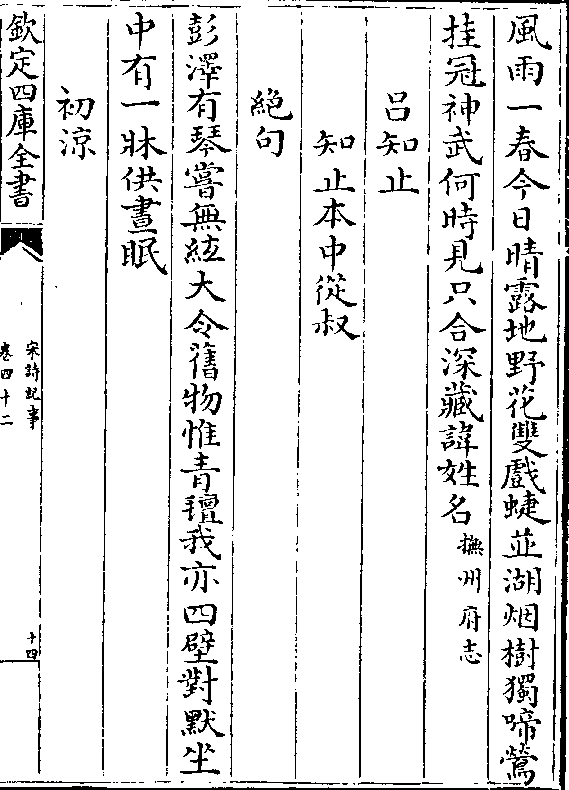 風雨一春今日晴露地野花雙戲蜨並湖烟樹獨啼鶯
挂冠神武何時見只合深藏諱姓名撫州府志
呂知止
知止本中從叔
絶句
彭澤有琴嘗無絃大令舊物惟青氊我亦四壁對默坐
中有一牀供晝眠
初涼
欽定四庫全書
宋詩紀事
卷四十二
十四